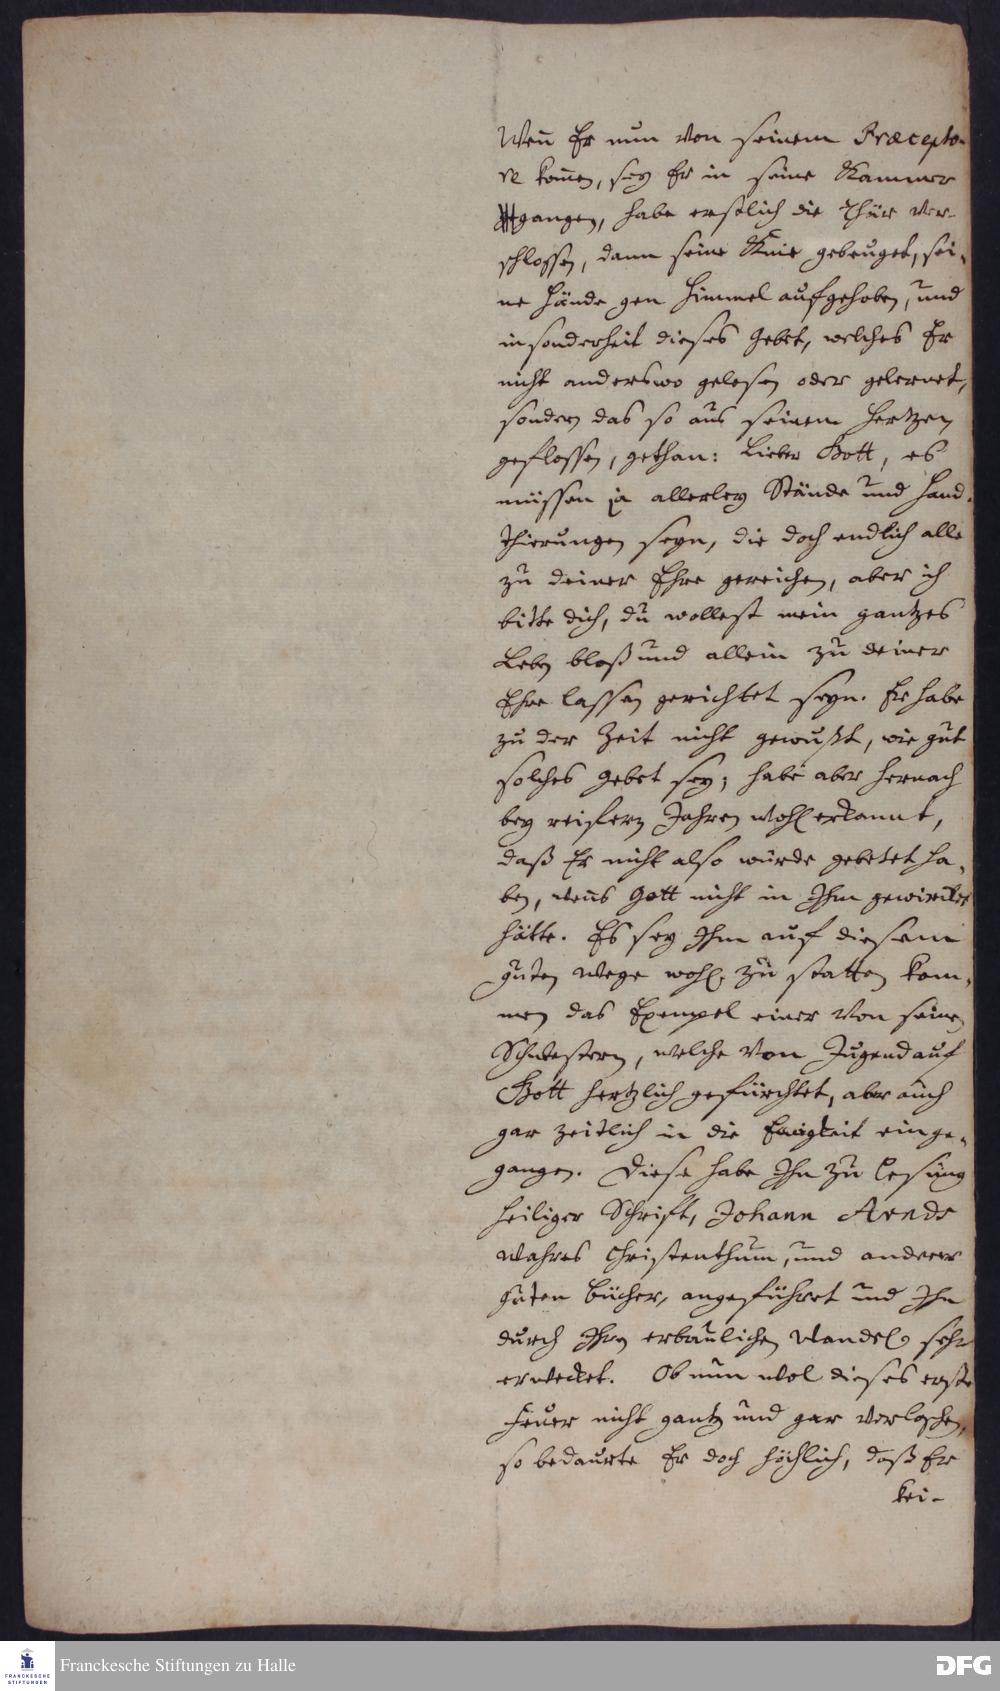 Weñ Er nun von seinem Præcepto-
re kom̃en, sey Er in seine Kammer
gangen, habe erstlich die Thür ver-
schlossen, dann seine Knie gebeuget, sei-
ne Hände gen Himmel aufgehoben, und
insonderheit dieses Gebet, welches Er
nicht anderswo gelesen oder gelernet,
sondern das so aus seinem Hertzen
geflossen, gethan: Lieber Gott, es
müssen ja allerley Stände und Hand-
thierungen seyn, die doch endlich alle
zu deiner Ehre gereichen, aber ich
bitte dich, du wollest mein gantzes
Leben bloß und allein zu deiner
Ehre lassen gerichtet seyn. Er habe
zu der Zeit nicht gewußt, wie gut
solches Gebet sey; habe aber hernach
bey reifern Jahren wohl erkannt,
daß Er nicht also würde gebetet ha-
ben, weñs Gott nicht in Ihm gewircket
hätte. Es sey Ihm auf diesem
guten Wege wohl zu statten kom-
men das Exempel einer von seinen
Schwestern, welche von Jugend auf
Gott hertzlich gefürchtet, aber auch
gar zeitlich in die Ewigkeit einge-
gangen. Diese habe Ihn zu Lesung
heiliger Schrift, Johann Arnds
wahres Christenthum, und anderer
guten Bücher, angeführet und Ihn
durch Ihren erbaulichen Wandel sehr
erwecket. Ob nun wol dieses erste
Feuer nicht gantz und gar verloschen,
so bedaurte Er doch höchlich, daß Er
kei-
Franckesche Stiftungen zu Halle
FRANCKESCHE
STIFTUNGEN
DFG